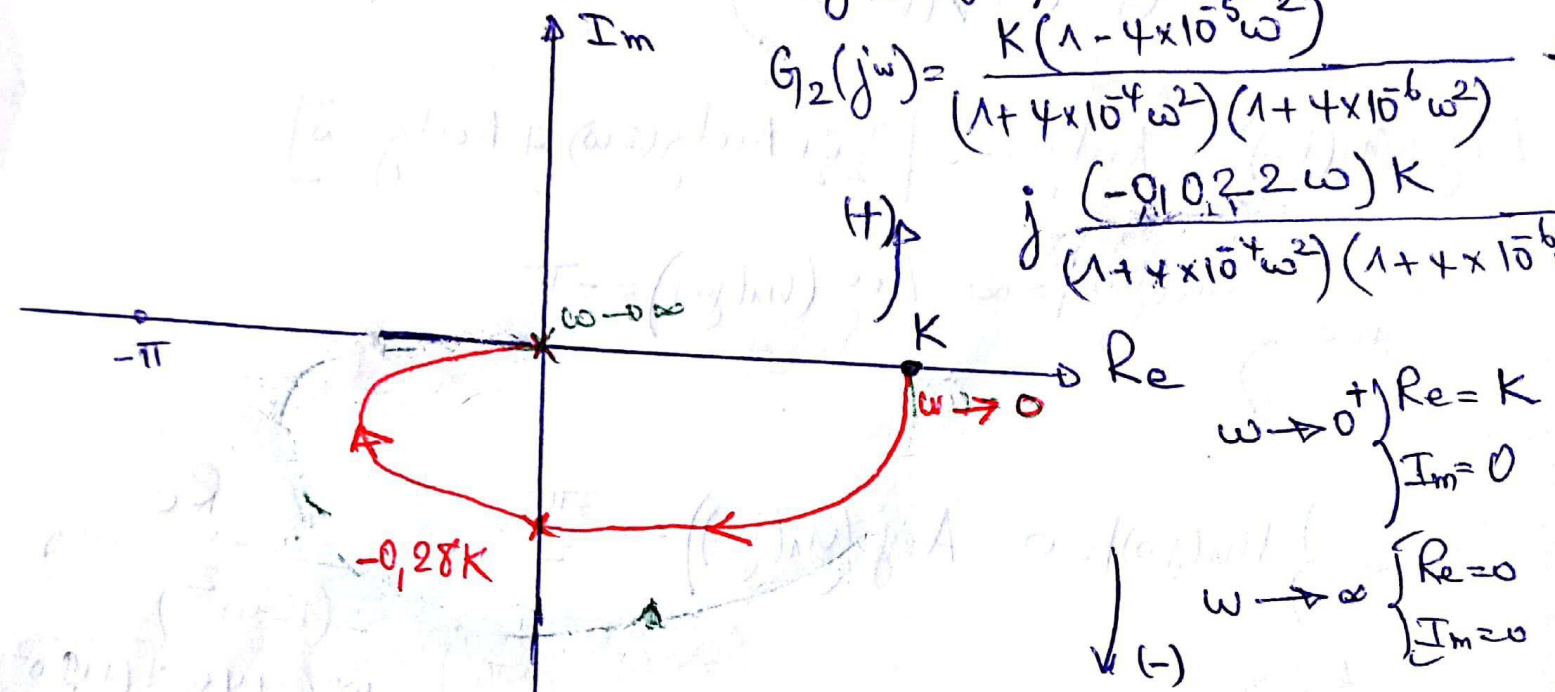 Im
G₂(jω) = K(1-4×10⁻⁵ω²)
(1+4×10⁻⁴ω²)(1+4×10⁻⁶ω²)
(+)
j (-0,022ω)K
(1+4×10⁻⁴ω²)(1+4×10⁻⁶
ω→∞
K
-π
Re
ω→0
ω→0⁺ { Re = K
Im = 0
-0,28K
ω→∞ { Re = 0
Im = 0
(-)